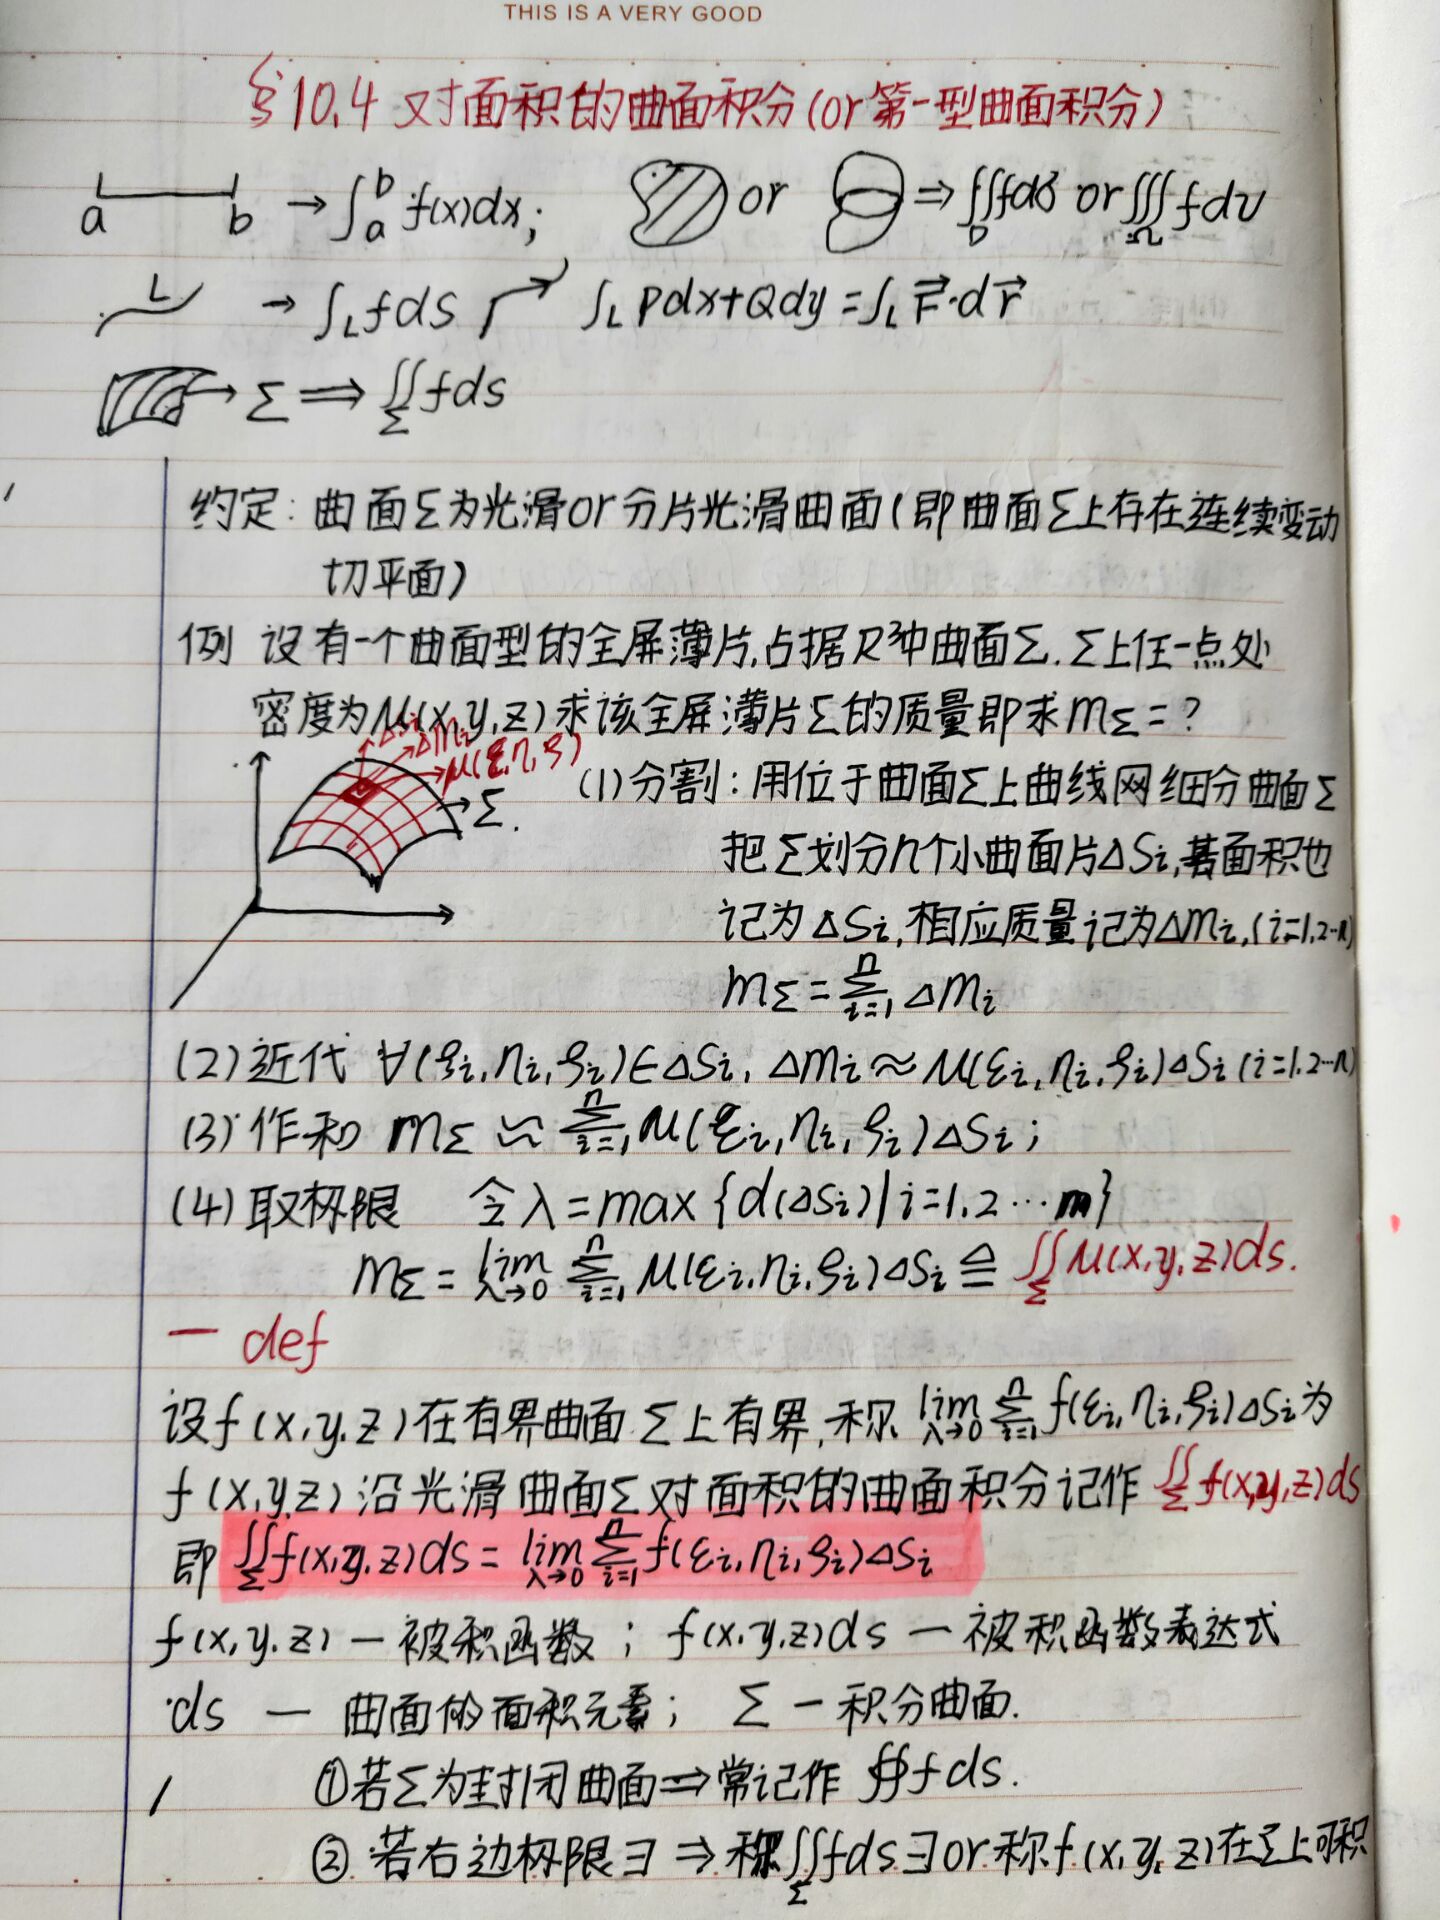 THIS IS A VERY GOOD
§10.4 对面积的曲面积分(or 第一型曲面积分)
a b → ∫_a^b f(x)dx; or ⇒ ∬_D fdσ or ∭_Ω fdv
L → ∫_L fds ∫_L Pdx+Qdy=∫_L F⃗·dr⃗
Σ ⇒ ∬_Σ fds
约定: 曲面Σ为光滑or分片光滑曲面(即曲面Σ上存在连续变动
切平面)
例 设有一个曲面型的金属薄片,占据R³中曲面Σ. Σ上任一点处
密度为μ(x,y,z)求该金属薄片Σ的质量即求m_Σ=?
ΔSi
Δmi
μ(ξ,η,ζ)
Σ.
(1)分割: 用位于曲面Σ上曲线网细分曲面Σ
把Σ划分n个小曲面片ΔSi,其面积也
记为ΔSi,相应质量记为Δmi,(i=1,2…n)
m_Σ=∑_{i=1}^n Δmi
(2)近代 ∀(ξi,ηi,ζi)∈ΔSi, Δmi≈μ(ξi,ηi,ζi)ΔSi (i=1,2…n)
(3)作和 m_Σ ≈ ∑_{i=1}^n μ(ξi,ηi,ζi)ΔSi;
(4)取极限 令λ=max{d(ΔSi)|i=1,2…n}
m_Σ=lim_{λ→0} ∑_{i=1}^n μ(ξi,ηi,ζi)ΔSi ≜ ∬_Σ μ(x,y,z)ds.
一 def
设f(x,y,z)在有界曲面Σ上有界,称 lim_{λ→0} ∑_{i=1}^n f(ξi,ηi,ζi)ΔSi为
f(x,y,z)沿光滑曲面Σ对面积的曲面积分记作 ∬_Σ f(x,y,z)ds
即 ∬_Σ f(x,y,z)ds=lim_{λ→0} ∑_{i=1}^n f(ξi,ηi,ζi)ΔSi
f(x,y,z)—被积函数; f(x,y,z)ds—被积函数表达式
ds — 曲面的面积元素; Σ—积分曲面.
①若Σ为封闭曲面⇒常记作 ∯fds.
②若右边极限∃ ⇒ 称∬_Σ fds∃or称f(x,y,z)在Σ上可积